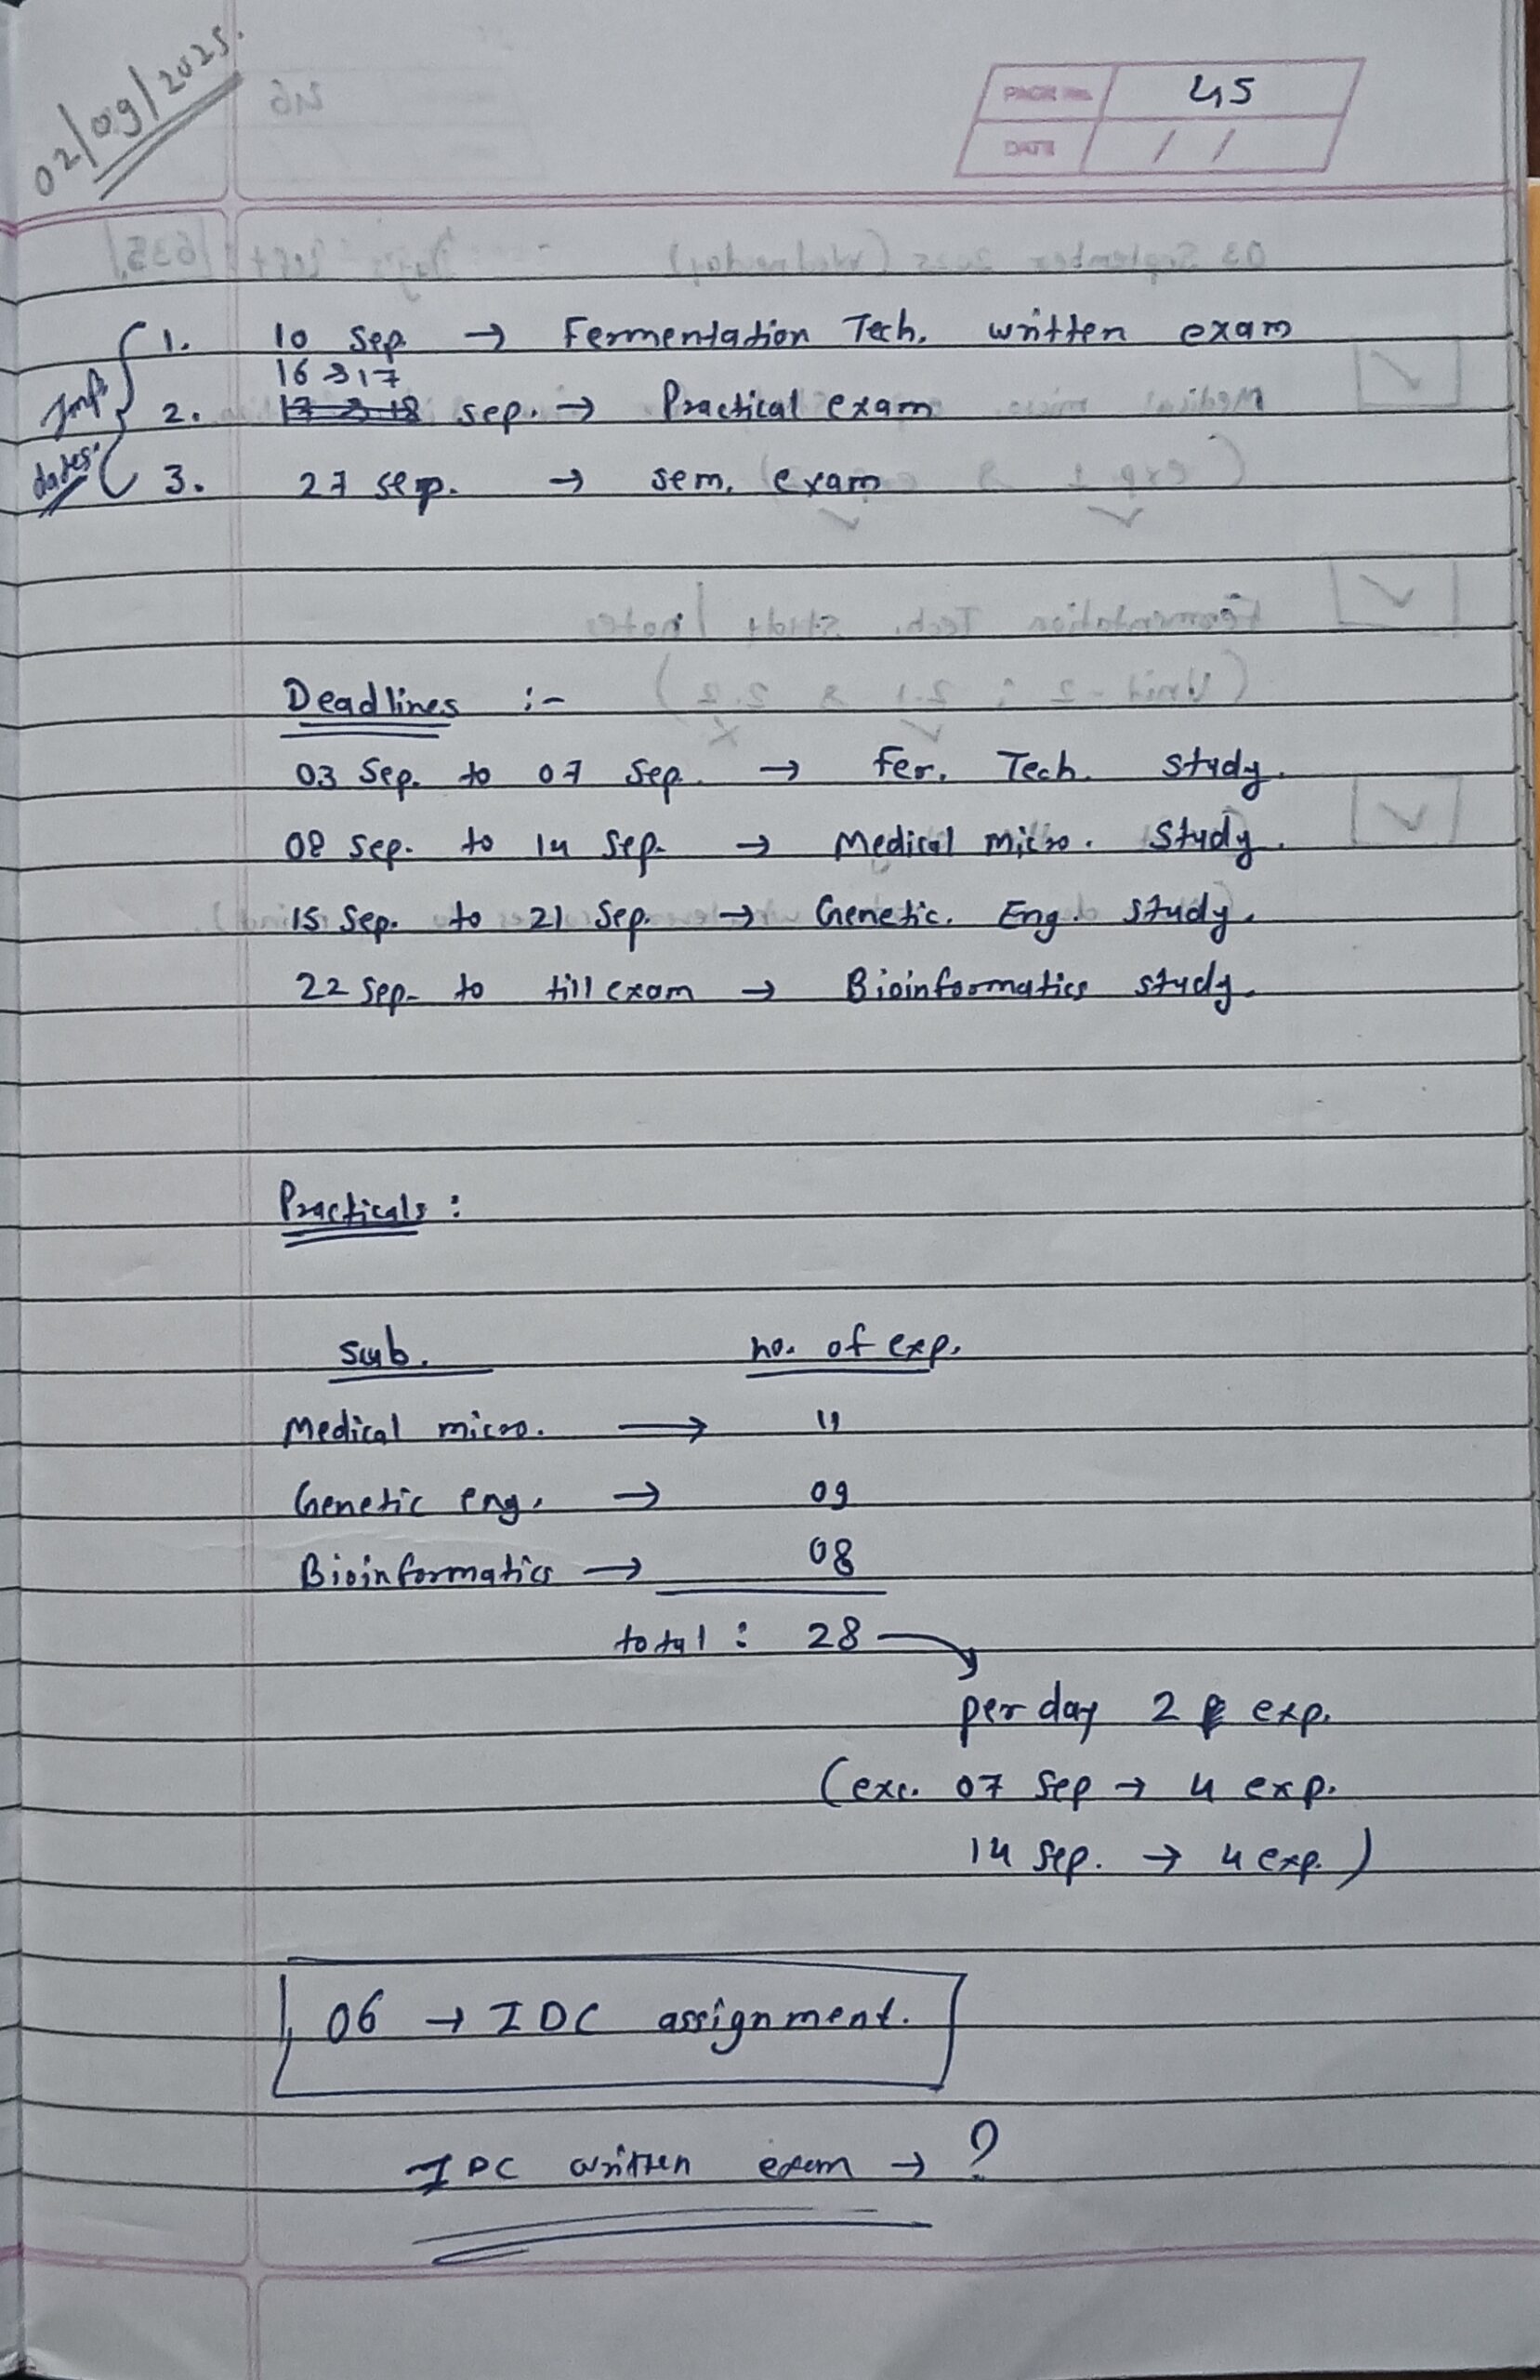 02/09/2025.
PAGE No. 45
DATE / /
Imp. dates.
1. 10 Sep. → Fermentation Tech. written exam
16 & 17
2. 17 & 18 sep. → Practical exam
3. 27 sep. → sem. exam
Deadlines :-
03 Sep. to 07 Sep. → Fer. Tech. study.
08 sep. to 14 sep. → Medical micro. study.
15 Sep. to 21 Sep. → Genetic. Eng. study.
22 sep. to till exam → Bioinformatics study.
Practicals :
sub. no. of exp.
Medical micro. → 11
Genetic eng. → 09
Bioinformatics → 08
total : 28
per day 2 exp.
(exc. 07 Sep → 4 exp.
14 Sep. → 4 exp.)
06 → IDC assignment.
IDC written exam → ?